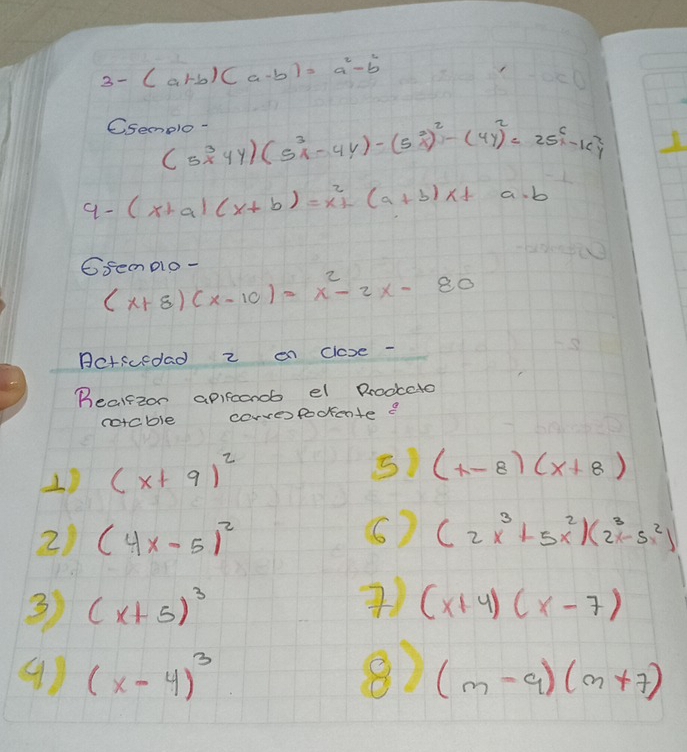 3- (a+b)(a-b) = a²-b²
Esemplo-
(5x³ 4y)(5x³-4y)-(5x³)²-(4y)²= 25x⁶-16y²
4-(x+a)(x+b)=x²+ (a+b)x+ a.b
Esemplo-
(x+8)(x-10)= x²-2x- 80
Actividad 2 en clase-
Realizon aplicando el Producto
notable correspodiente :
1) (x+9)²
2) (4x-5)²
3) (x+5)³
4) (x-4)³
5) (+-8)(x+8)
6) (2x³+5x²)(2x³-5x²)
7) (x+4)(x-7)
8) (m-9)(m+7)